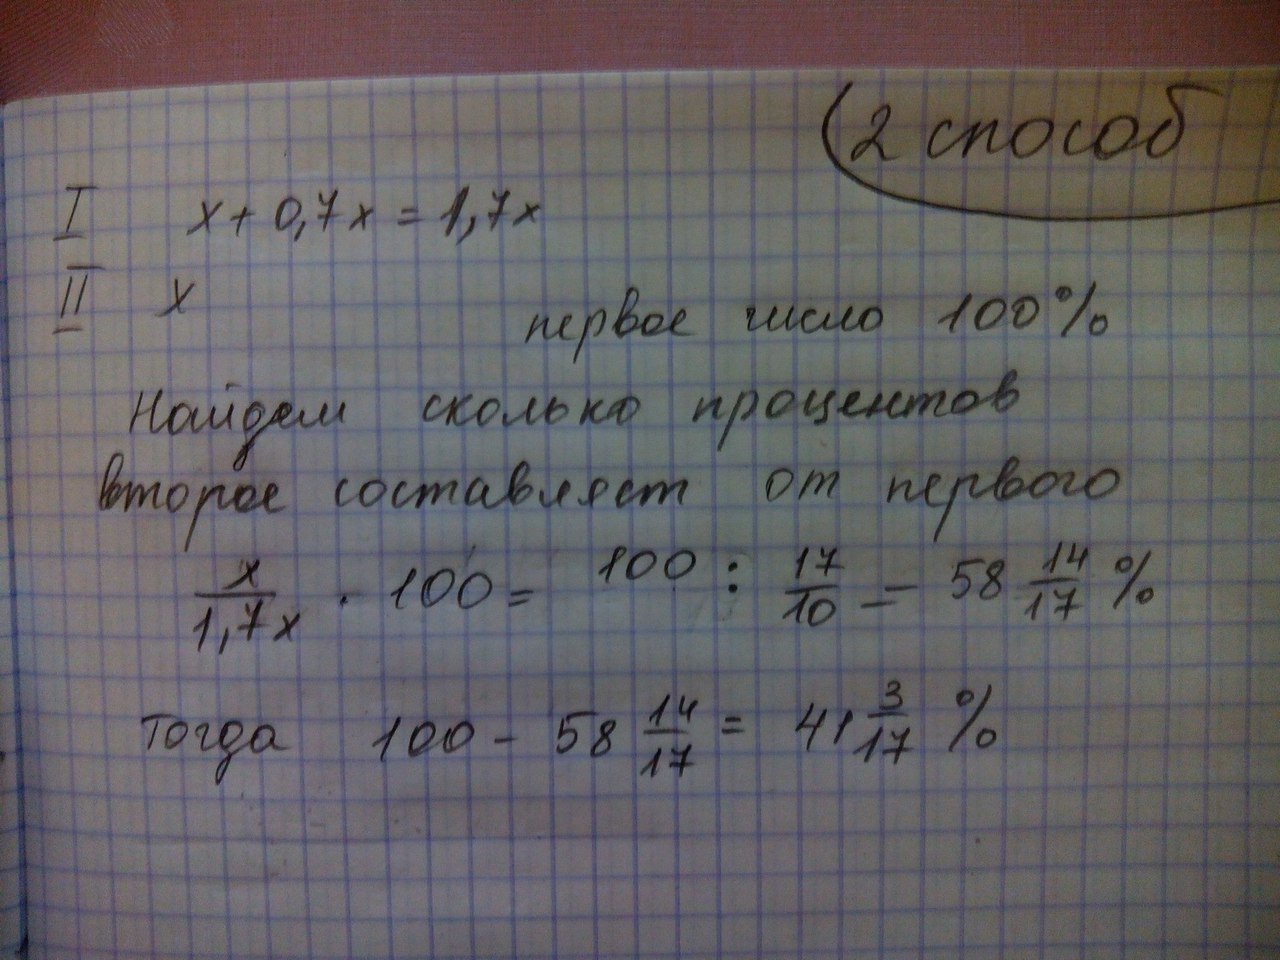 2 способ
I x + 0,7x = 1,7x
II x
первое число 100%
Найдем сколько процентов
второе составляет от первого
x/1,7x · 100 = 100 : 17/10 = 58 14/17 %
Тогда 100 - 58 14/17 = 41 3/17 %